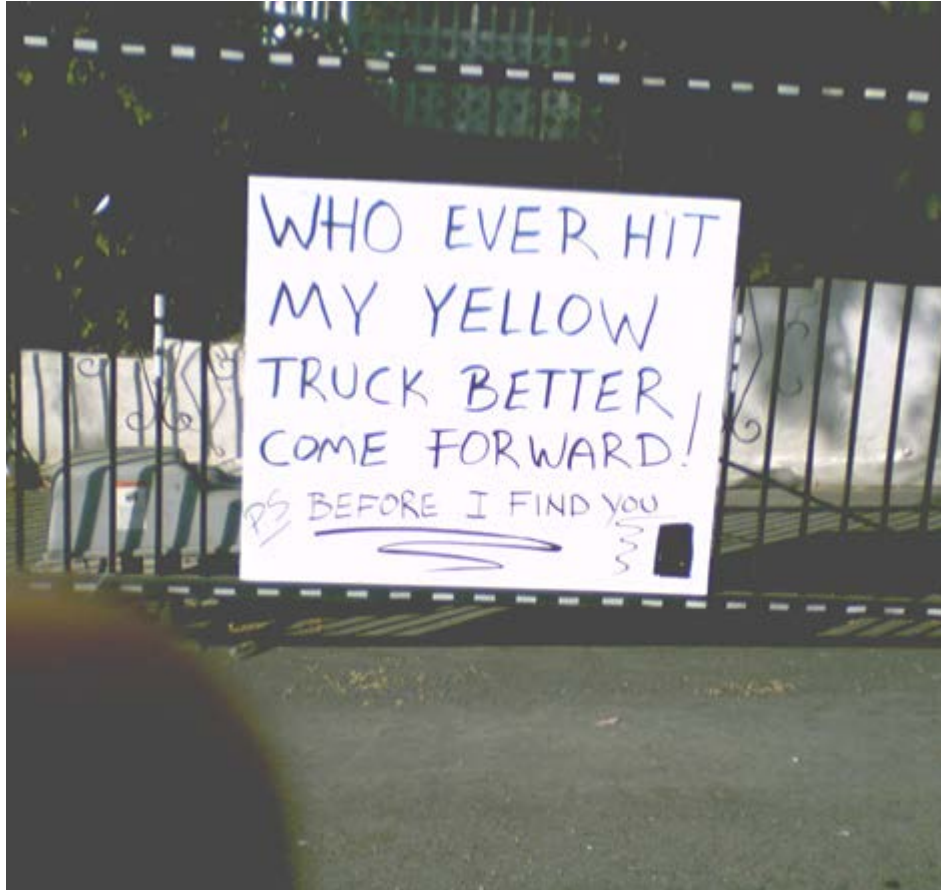 WHO EVER HIT
MY YELLOW
TRUCK BETTER
COME FORWARD!
PS BEFORE I FIND YOU